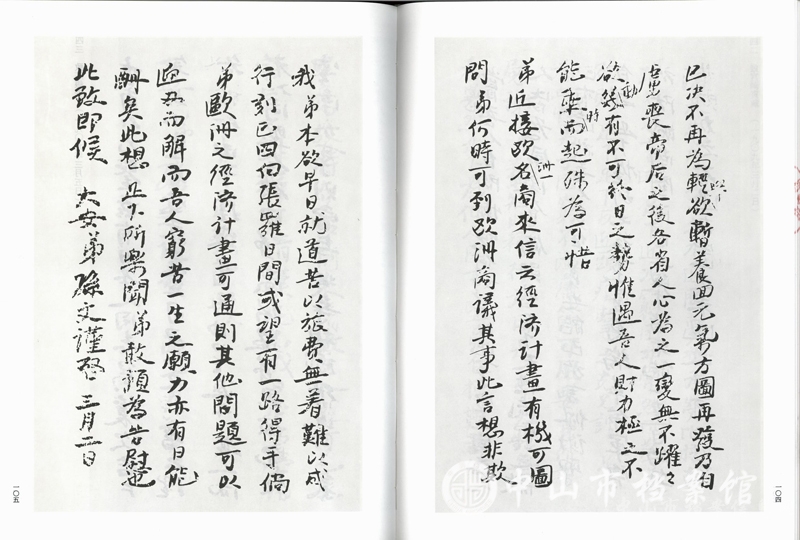 已決不再為輕舉欲暫養回元氣方圖再發乃自
虜喪帝后之後各省人心為之一變無不躍々
欲動幾有不可終日之勢惟遇吾人財力極乏不
能乘時而起殊為可惜
弟近接欧洲一名商來信云經济計畫有機可圖
問弟何時可到欧洲商議其事此言想非欺
一〇四
我弟本欲早日就道苦以旅費無着難以成
行刻已四向張羅日間或望有一路得手倘
弟歐洲之經济計畫可通則其他問題可以
迎刃而解而吾人窮苦一生之願力亦有日能
酬矣此想足下所樂聞弟敢預為告慰也
此致即候 大安 弟孫文謹啓 三月二日
一〇五
中山市档案馆